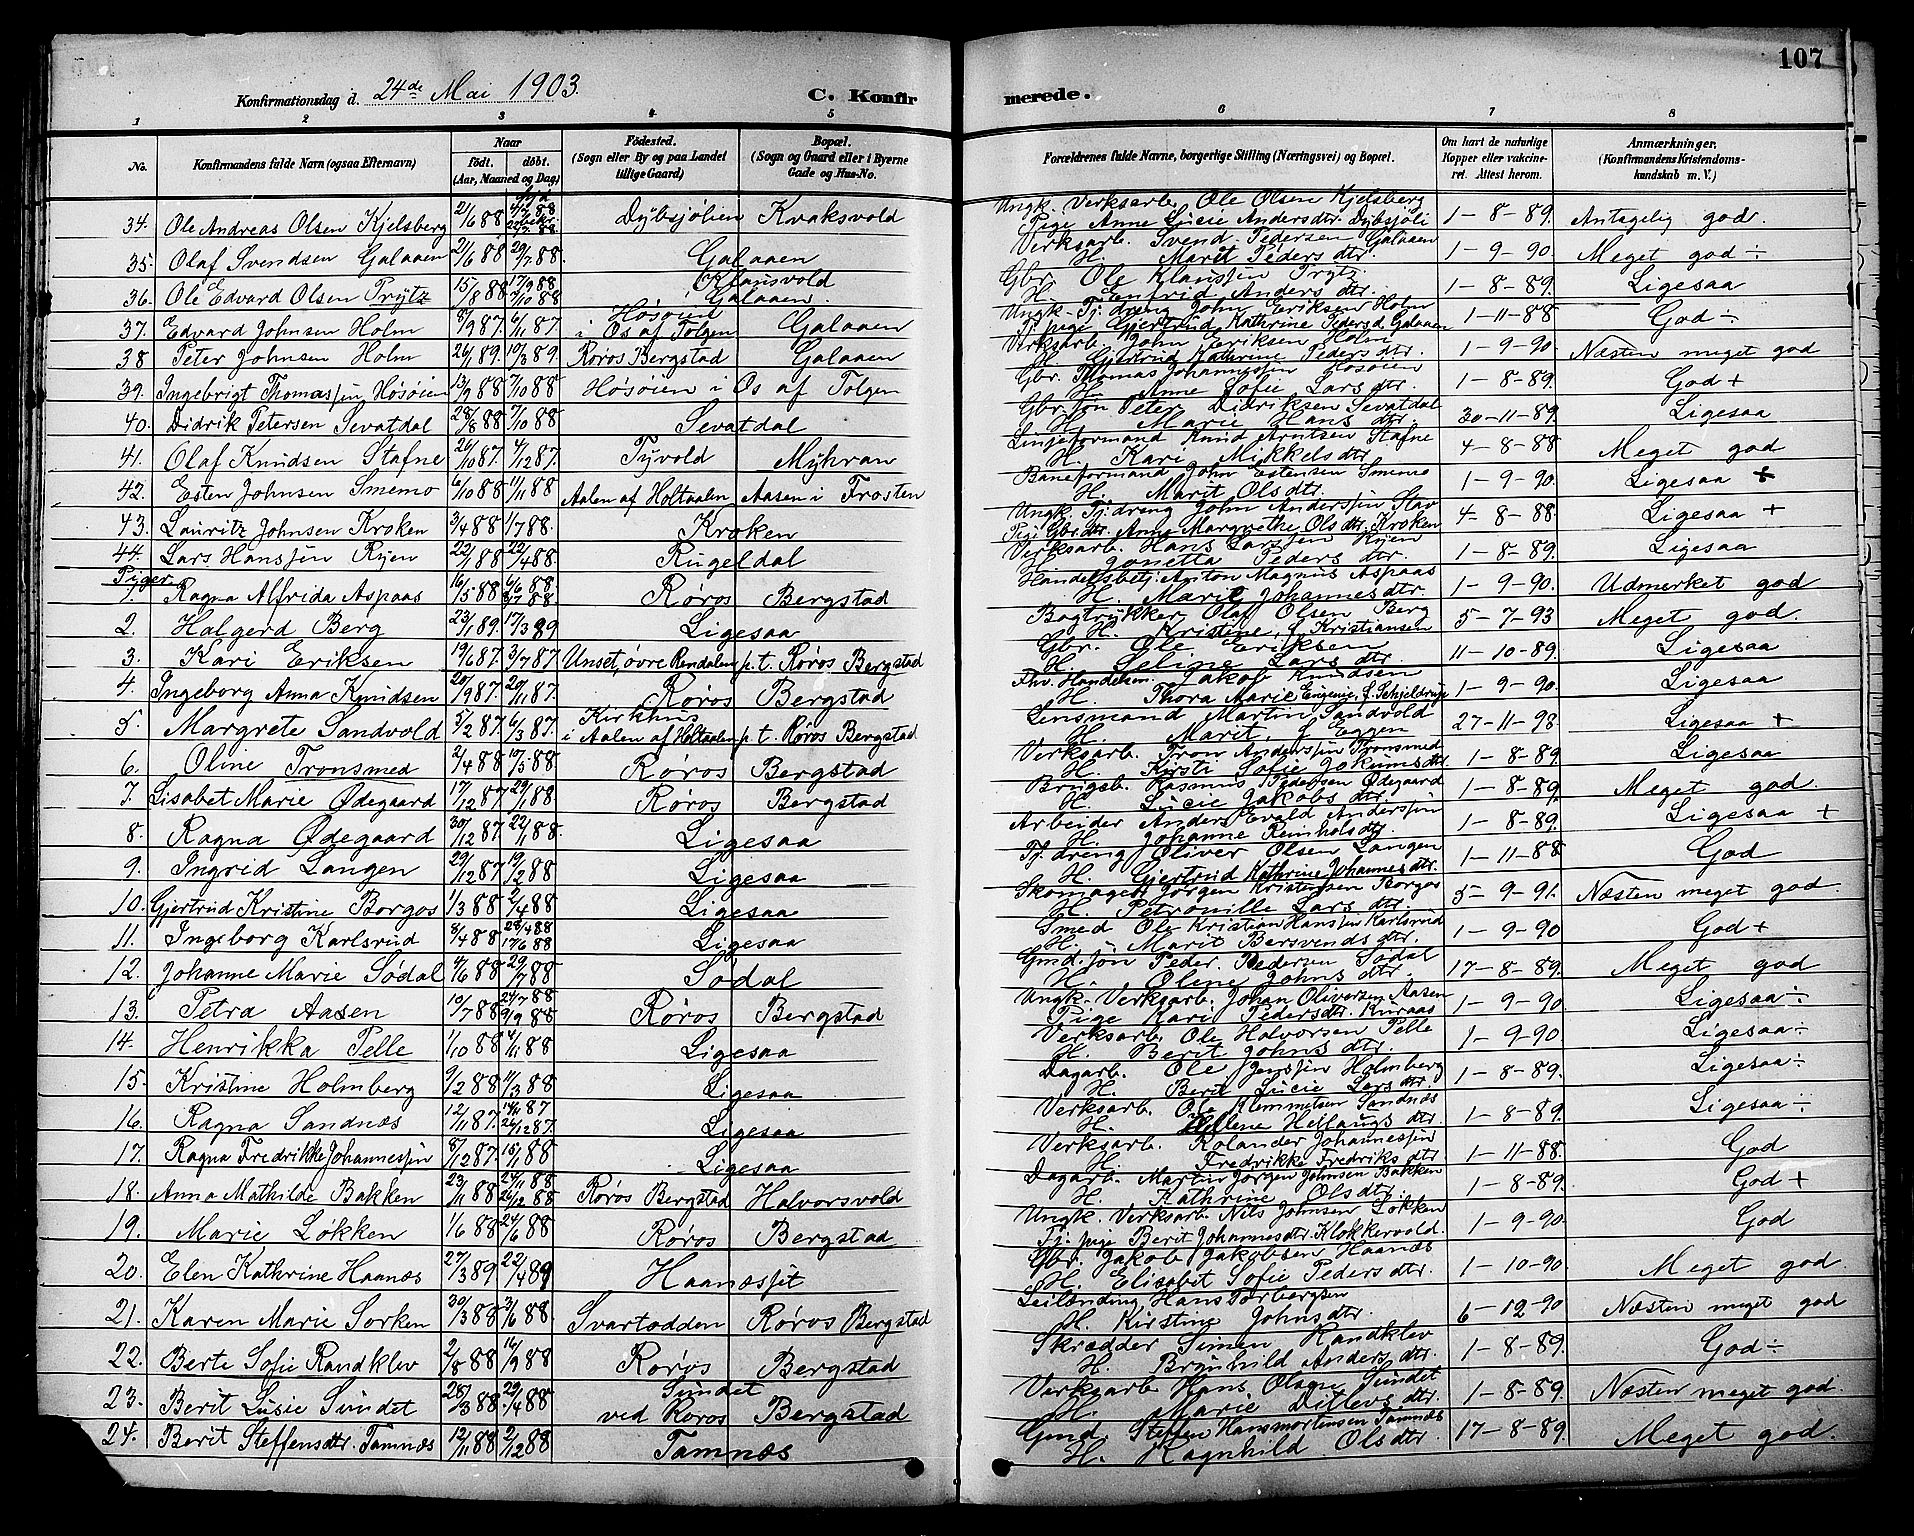 107
Konfirmationsdag d. 24de Mai 1903. C. Konfirmerede.
1 2 3 4 5 6 7 8
No. Konfirmandens fulde Navn (ogsaa Efternavn) Naar født. døbt. (Aar, Maaned og Dag) Fødested. (Sogn eller By og paa Landet tillige Gaard) Bopæl. (Sogn og Gaard eller i Byerne Gade og Hus-No. Forældrenes fulde Navne, borgerlige Stilling (Næringsvei) og Bopæl. Om havt de naturlige Kopper eller vakcineret. Attest herom. Anmærkninger. (Konfirmandens Kristendomskundskab m. V.)
34. Ole Andreas Olsen Kjelsberg 2/6 88 Dybsjølien Kvaksvold Ungk. Verksarb. Ole Olsen Kjelsberg Pige Anne Lucie Andersdtr. Dybsjøli 1-8-89. Antagelig god.
35. Olaf Svendsen Galaaen 2/6 88 29/7 88. Galaaen Verksarb. Svend Pedersen Galaaen H. Marit Peders dtr. 1-9-90. Meget god ÷
36. Ole Edvard Olsen Trytz 15/8 88 17/9 88 7/10 88 Klausvold Galaaen. Gbr. Ole Klaussen Trytz H. Enfrid Anders dtr. 1-8-89. Ligesaa
37. Edvard Johnsen Holm 8/9 87. 6/11 87 Høsøien i Os af Tolgen Galaaen Ungk. Tj. dreng John Eriksen Holm Tj. pige Gjertrud Kathrine Pedersd. Galaaen 1-11-88 God ÷
38 Peter Johnsen Holm 26/1 89. 17/3 89. Røros Bergstad Galaaen Verksarb. John Eriksen Holm H. Gjertrud Kathrine Peders dtr. 1-9-90. Næsten meget god
39. Ingebrigt Thomassen Høsøien 13/9 88 7/10 88 Høsøien i Os af Tolgen Gbr. Thomas Johannessen Høsøien H. Anne Sofie Lars dtr. 1-8-89. God +
40. Didrik Petersen Sevatdal 28/8 88 7/10 88 Sevatdal Gbr. søn Peter Didriksen Sevatdal H. Marie Hans dtr. 30-11-89. Ligesaa
41. Olaf Knudsen Stafne 26/10 87. 4/12 87. Tyvold Myhran Linjeformand Knud Arntsen Stafne H. Kari Mikkelsdtr. 4-8-88 Meget god
42. Esten Johnsen Smemo 6/10 88 11/11 88 Aalen af Holtaalen Aasen i Frosten Baneformand John Estensen Smemo H. Marit Olsdtr. 1-9-90. Ligesaa +
43. Lauritz Johnsen Kroken 3/4 88 1/7 88. Kroken Ungk. Tj. dreng John Anderssen Stav Pige Gbr. dtr. Anna Margrethe Olsdtr. Kroken 4-8-88. Ligesaa +
44. Lars Hanssen Ryen 22/1 88 22/4 88. Rugeldal Verksarb. Hans Larssen Ryen H. Jonetta Peders dtr. 1-8-89. Ligesaa
Piger.
1. Ragna Alfrida Aspaas 16/5 88 6/6 88 Røros Bergstad Handelsbetj. Anton Magnus Aspaas H. Marie Johannesdtr. 1-9-90. Udmerket god
2. Halgerd Berg 23/1 89. 17/3 89 Ligesaa Bogtrykker Olaf Olsen Berg H. Kristine, f. Kristiansen 5-7-93 Meget god.
3. Kari Eriksen 19/6 87. 3/7 87 Unset, øvre Rendalen p.t. Røros Bergstad Gbr. Ole Eriksen H. Seline Lars dtr. 11-10-89. Ligesaa
4. Ingeborg Anna Knudsen 20/9 87. 20/11 87. Røros Bergstad Fhv. Handelsm. Jakob Knudsen H. Thora Marie Eugenie, f. Schjeldrup 1-9-90. Ligesaa
5. Margrete Sandvold 5/2 87. 6/3 87. Kirkhus i Aalen af Holtaalen p.t. Røros Bergstad Lensmand Martin Sandvold H. Marit, f. Eggen 27-11-98 Ligesaa +
6. Oline Tronsmed 2/4 88 10/5 88 Røros Bergstad Verksarb. Tron Anderssen Tronsmed H. Kirsti Sofie Jokumsdtr. 1-8-89. Ligesaa
7. Lisabet Marie Ødegaard 17/12 87 29/1 88 Røros Bergstad Brugsb. Rasmus Pedersen Ødegaard H. Lucie Jakobs dtr. 1-8-89. Meget god.
8. Ragna Ødegaard 30/12 87. 22/1 88. Ligesaa Arbeider Anders Evald Anderssen H. Johanne Reinholsdtr. 1-8-89. Ligesaa +
9. Ingrid Langen 29/12 87 19/2 88 Ligesaa Tj. dreng Oliver Olsen Langen H. Gjertrud Kathrine Johannesdtr. 1-11-88 God
10. Gjertrud Kristine Borgos 1/3 88 2/4 88 Ligesaa Skomager Jørgen Kristensen Borgos H. Petronille Lars dtr. 5-9-91. Næsten meget god.
11. Ingeborg Karlsrud 8/4 88 28/4 88 17/6 88 Ligesaa Smed Ole Kristian Hanssen Karlsrud H. Marit Bersvends dtr. 1-9-90 God +
12. Johanne Marie Sødal 4/6 88 29/7 88 Sødal Gmd. søn Peder Pedersen Sødal H. Oline Johns dtr. 17-8-89. Meget god
13. Petra Aasen 10/7 88 24/7 88 9/9 88 Røros Bergstad Ungk. Verksarb. Johan Oliversen Aasen Pige Kari Pedersdtr. Kuraas 1-9-90 Ligesaa ÷
14. Henrikka Pelle 1/10 88 4/11 88 Ligesaa Verksarb. Ole Halvorsen Pelle H. Berit Johns dtr. 1-9-90 Ligesaa ÷
15. Kristine Holmberg 9/2 88 11/3 88 Ligesaa Dagarb. Ole Jenssen Holmberg H. Berit Lucie Lars dtr. 1-8-89. Ligesaa ÷
16. Ragna Sandnæs 12/11 87. 26/12 87. Ligesaa Verksarb. Ole Klemmetsen Sandnæs H. Hellene Hellaugs dtr. 1-8-89. Ligesaa ÷
17. Ragna Fredrikke Johannessen 8/12 87. 15/1 88 Ligesaa Verksarb. Rolander Johannessen H. Fredrikke Fredriks dtr. 1-11-88. God
18. Anna Mathilde Bakken 23/11 88 29/11 88 26/12 88 Røros Bergstad Halvorsvold Dagarb. Martin Jørgen Johnsen Bakken H. Kathrine Olsdtr. 1-8-89. God +
19. Marie Løkken 1/6 88 24/6 88 Røros Bergstad Ungk. Verksarb. Nils Johnsen Løkken Tj. pige Berit Johannesdtr. Klokkervold. 1-9-90. God
20. Elen Kathrine Haanæs 27/3 89 22/4 89 Haanæsset Gbr. Jakob Jakobsen Haanæs H. Elisabet Sofie Peders dtr. 1-10-90. Meget god
21. Karen Marie Sorken 30/3 88 3/6 88. Svartodden Røros Bergstad Leilænding Hans Torbergsen H. Kirstine Johnsdtr. 6-12-90 Næsten meget god
22. Berte Sofie Randklev 2/8 88 16/9 88 Røros Bergstad Skrædder Simen Randklev H. Brynhild Anders dtr. 1-8-89. God ÷
23. Berit Lusie Sundet 28/3 88 29/4 88 Sundet ved Røros Bergstad Verksarb. Hans Olsen Sundet H. Marie Ditlevs dtr. 1-8-89. Næsten meget god.
24. Berit Steffensdtr. Tamnæs 12/11 88 2/12 88 Tamnæs Gmd. Steffen Hansmortensen Tamnæs H. Ragnhild Olsdtr. 17-8-89. Meget god.